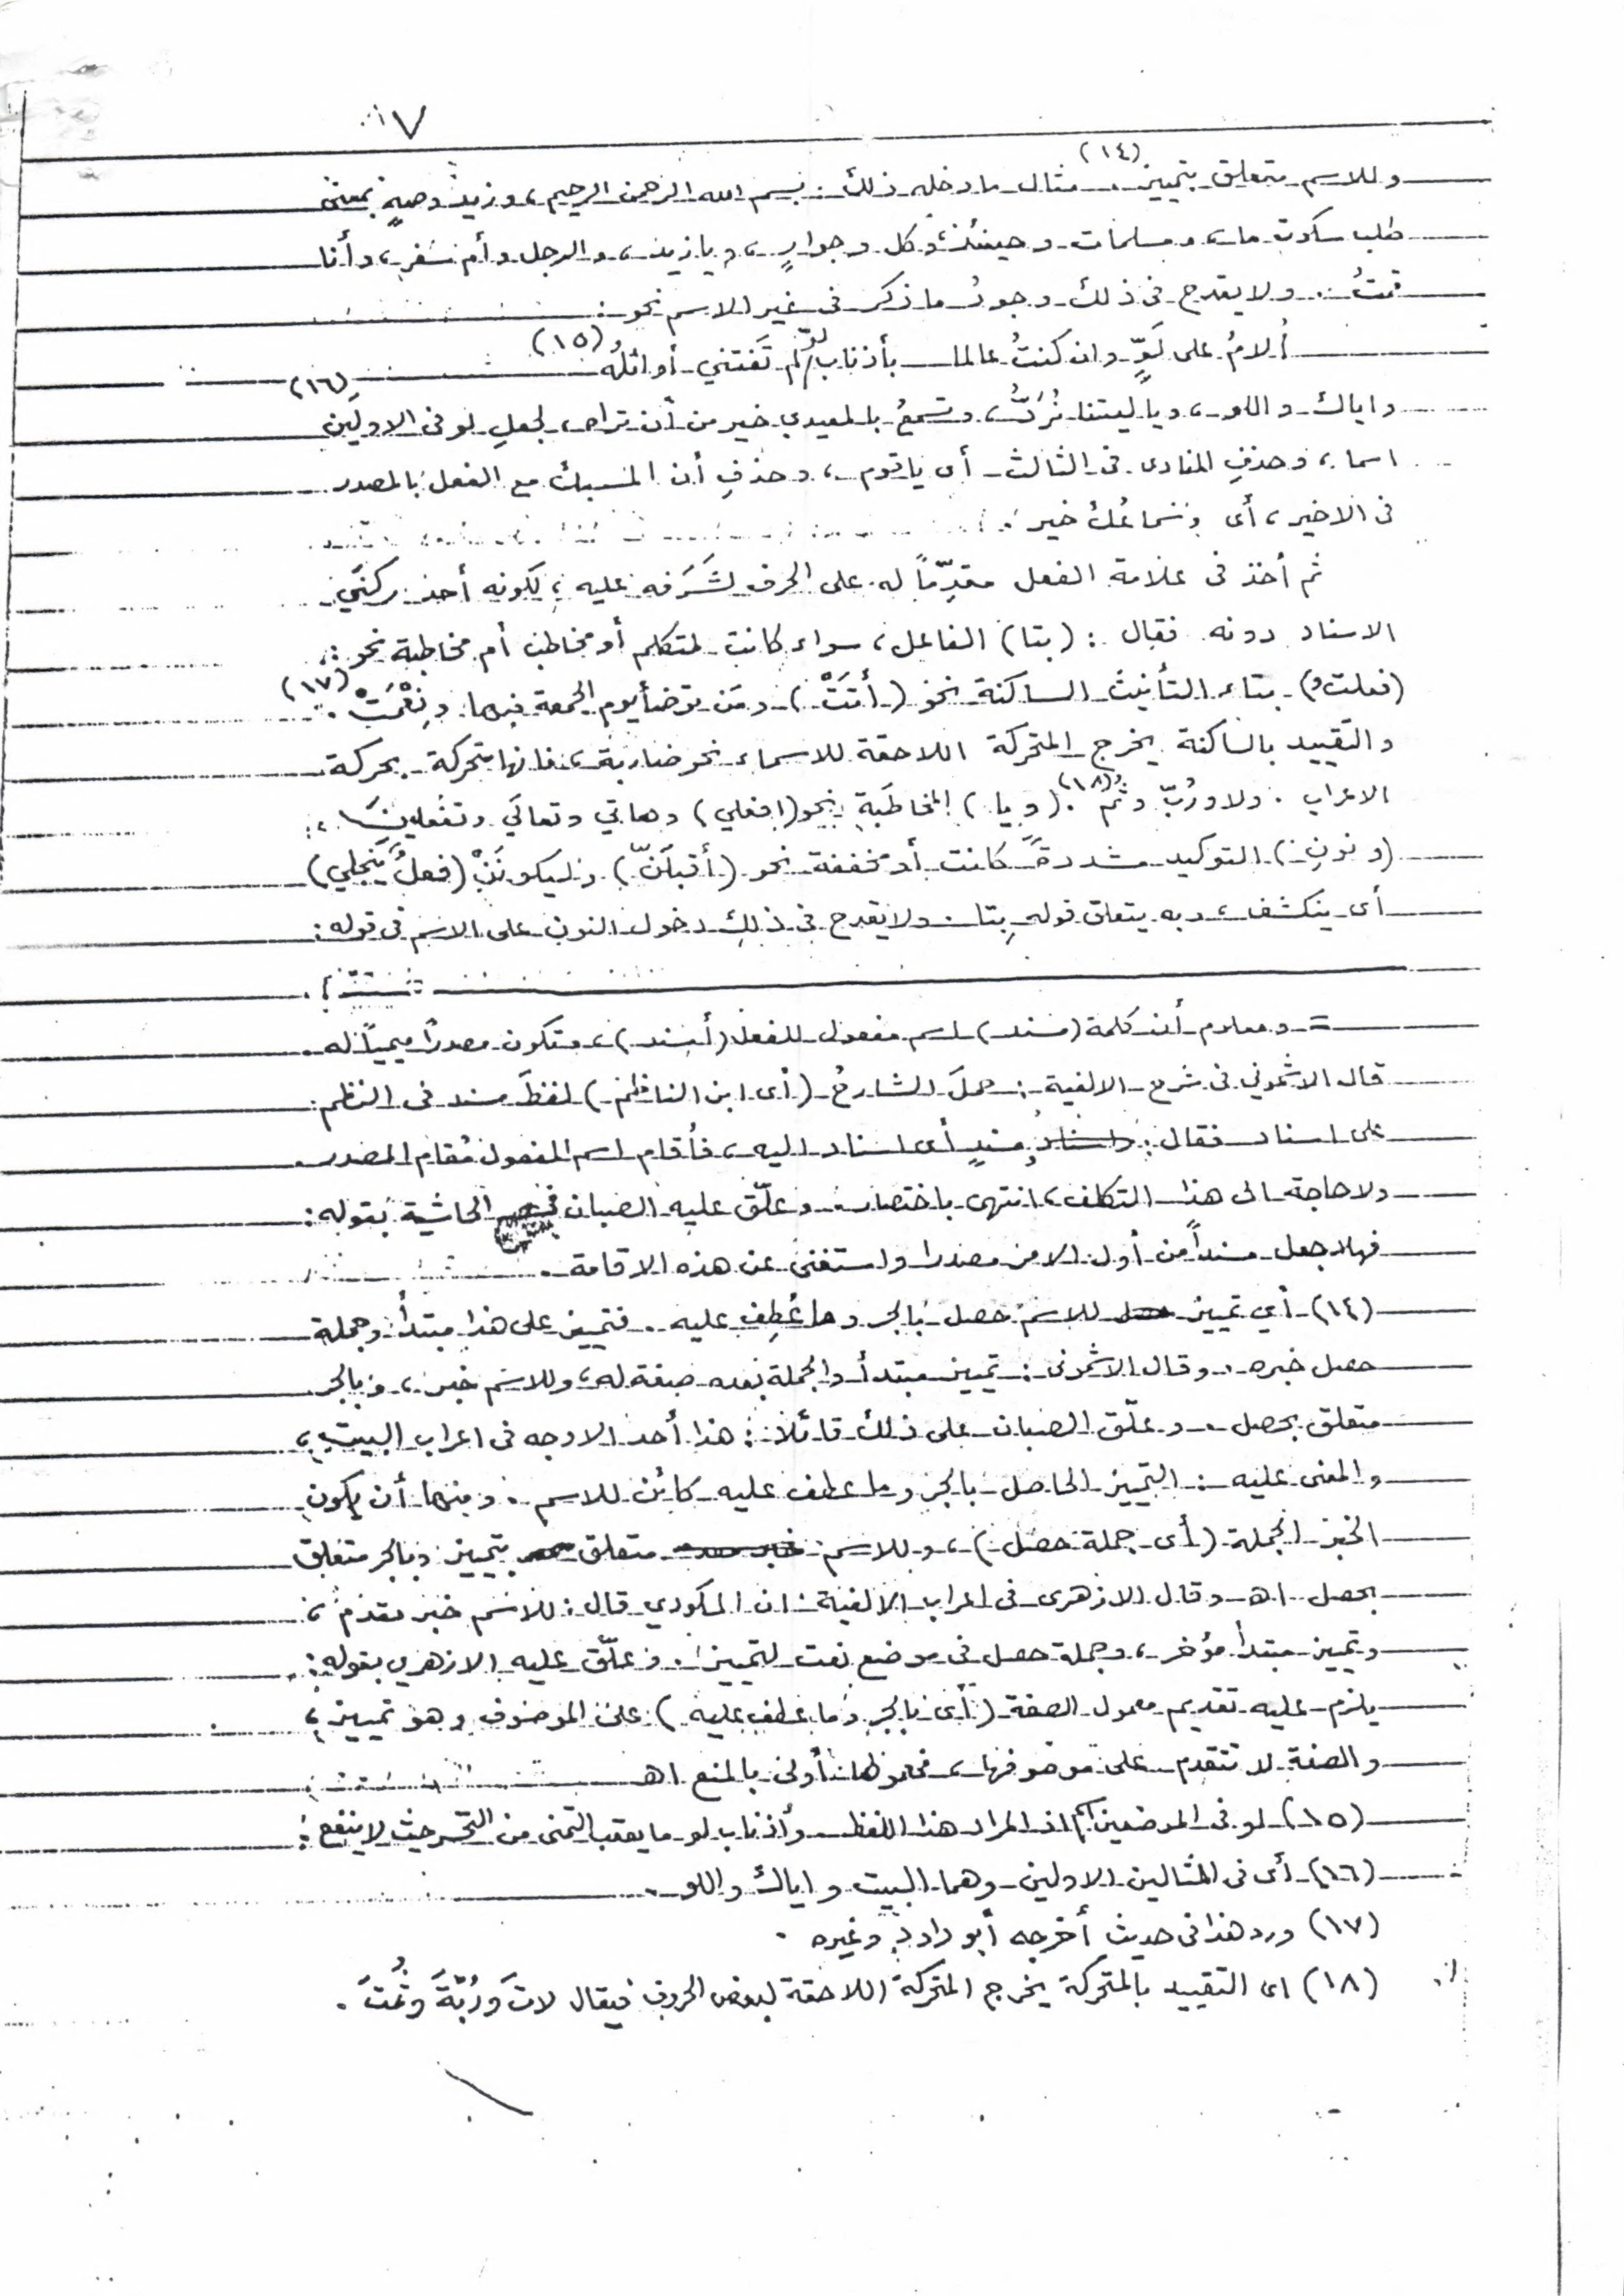 ٧
وللاسم متعلق بتمييز (١٤) . مثال ما دخله ذلك : بسم الله الرحمن الرحيم ، وزيدٌ وصهٍ بمعنى
طلب سكوت ما ، ومسلمات وحينئذ ، وكل وجوارٍ ، ويا زيد ، والرجل وأم سفر ، وأنا
قمتُ . ولا يقدح في ذلك وجودُ ما ذكر في غير الاسم نحو :
أُلامُ على لَوٍّ وان كنتُ عالما بأذناب لوٍّ لم تَفتني أوائلُه (١٥)
واياك واللو ، ويا ليتنا نُرَدُّ ، وتسمعُ بالمعيدي خير من أن تراه ، لجعلِ لو في الاولَين (١٦)
اسما ، وحذفِ المنادى في الثالث أى يا قوم ، وحذفِ أن المنسبك مع الفعل بالمصدر
في الاخير ، أى وسماعُك خير .
ثم أخذ في علامة الفعل مقدِّماً له على الحرف لشَرَفه عليه ، لكونه أحد ركنَي
الاسناد دونه فقال : (بتا) الفاعل ، سواء كانت لمتكلم أو مخاطب أم مخاطبة نحو :
(فعلت و) بتاء التأنيث الساكنة نحو (أتَتْ) ومَن توضأ يوم الجمعة فبها ونِعْمَتْ (١٧) .
والتقييد بالساكنة يخرج المتحركة اللاحقة للاسماء نحو ضاربة ، فانها متحركة بحركة
الاعراب . ولا ورُبّ وثُم (١٨) . (ويا) المخاطَبَةِ نحو (افعلي) وهاتي وتعالَي وتفعلينَ ،
(ونونِ) التوكيد مشددةً كانت أو مخففة نحو (أقبلَنَّ) وليكونَنْ (فعلٌ ينجلي)
أى ينكشف ، وبه يتعلق قوله بِتا . ولا يقدح في ذلك دخول النون على الاسم في قوله :
= ومعلوم أن كلمة (مسند) اسم مفعول للفعل (أسند) ، وتكون مصدرًا ميمياً له .
قال الاشموني في شرح الالفية : حملَ الشارحُ (أى ابن الناظم) لفظَ مسند في النظم
على اسناد فقال : ومسندٍ أى اسناد اليه ، فأقام اسم المفعول مُقام المصدر
ولا حاجة الى هذا التكلف ، انتهى باختصار . وعلّق عليه الصبان في الحاشية بقوله :
فهلا جعل مسنداً من أول الامر مصدرا واستغنى عن هذه الاقامة .
(١٤) أي تمييز للاسم حصل بالجر وما عُطِف عليه . فتمييز على هذا مبتدأ وجملة
حصل خبره . وقال الاشمونى : تمييز مبتدأ والجملة بعده صفة له ، وللاسم خبر ، وبالجر
متعلق بحصل . وعلّق الصبان على ذلك قائلا : هذا أحد الاوجه في اعراب البيت ،
والمعنى عليه : التمييز الحاصل بالجر وما عطف عليه كائن للاسم . ومنها أن يكون
الخبر الجملة (أى جملة حصل) ، وللاسم متعلق بتمييز وبالجر متعلق
بحصل اهـ وقال الازهرى في اعراب الالفية : ان المكودي قال : للاسم خبر مقدم ،
وتمييز مبتدأ مؤخر ، وجملة حصل في موضع نعت لتمييز . وعلّق عليه الازهري بقوله :
يلزم عليه تقديم معمول الصفة (أى بالجر وما عطف عليه) على الموصوف وهو تمييز ،
والصفة لا تتقدم على موصوفها ، فمعمولها أولى بالمنع اهـ
(١٥) لو في الموضعين اسم اذ المراد هذا اللفظ وأذناب لو ما يعقب التمنى من التحسر حيث لا ينفع :
(١٦) أى في المثالين الاولين وهما البيت واياك واللو .
(١٧) ورد هذا في حديث أخرجه أبو داود وغيره .
(١٨) اى التقييد بالمتحركة يخرج المتحركة اللاحقة لبعض الحروف فيقال لاتَ ورُبّةَ وثُمتَ .